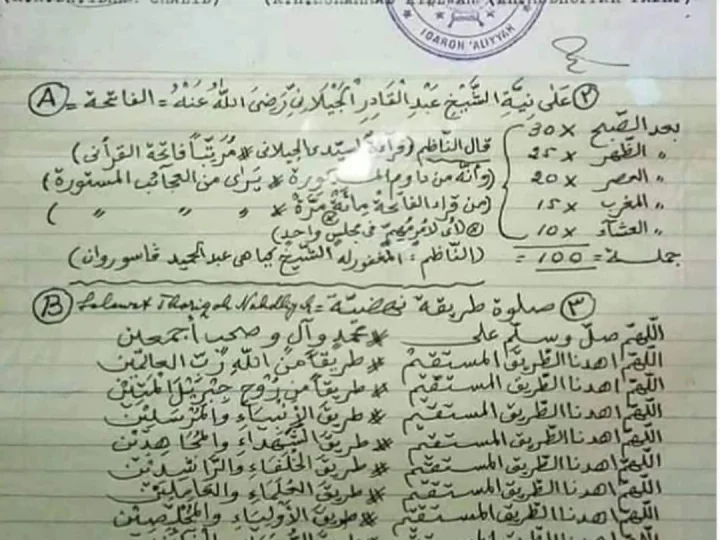 IDAROH 'ALIYYAH
Ⓐ ② عَلَى نِيَّةِ الشَّيْخِ عَبْدِ الْقَادِرِ الْجَيْلَانِى رَضِىَ اللهُ عَنْهُ = الفاتحة =
بعد الصّبح 30 x
〃 الظّهر 25 x قال النّاظم (قراءة لسيّدى الجيلانى * مُرَتِّبًا فاتحة القرآنى)
〃 العصر 20 x (وأنّه من داوم المذكورة * يَرَى من العجائب المستورة)
〃 المغرب 15 x (من قرأ الفاتحة مِأَةَ مَرَّةْ * 〃 〃 〃)
〃 العشآء 10 x (أى لأمر مُهِمّ فى مجلس واحدٍ)
جملة = 100 = (النّاظم: المغفورله الشّيخ عبد الحميد فاسوروان)
Ⓑ Salawat Thoriqoh Nahdliyah = ③ صلوة طريقة نهضيّة
اللّهمّ صلّ وسلّم على * محمّد وآلٍ وصحب أجمعين
اللّهمّ اهدنا الطّريق المستقيم * طريقًا من اللّه ربّ العالمين
اللّهمّ اهدنا الطّريق المستقيم * طريقًا من روح جبريل الأمين
اللّهمّ اهدنا الطّريق المستقيم * طريق الأنبياء والمرسلين
اللّهمّ اهدنا الطّريق المستقيم * طريق الشّهداء والمجاهدين
اللّهمّ اهدنا الطّريق المستقيم * طريق الخلفاء والرّاشدين
اللّهمّ اهدنا الطّريق المستقيم * طريق العلماء والعاملين
اللّهمّ اهدنا الطّريق المستقيم * طريق الأولياء والمخلصين